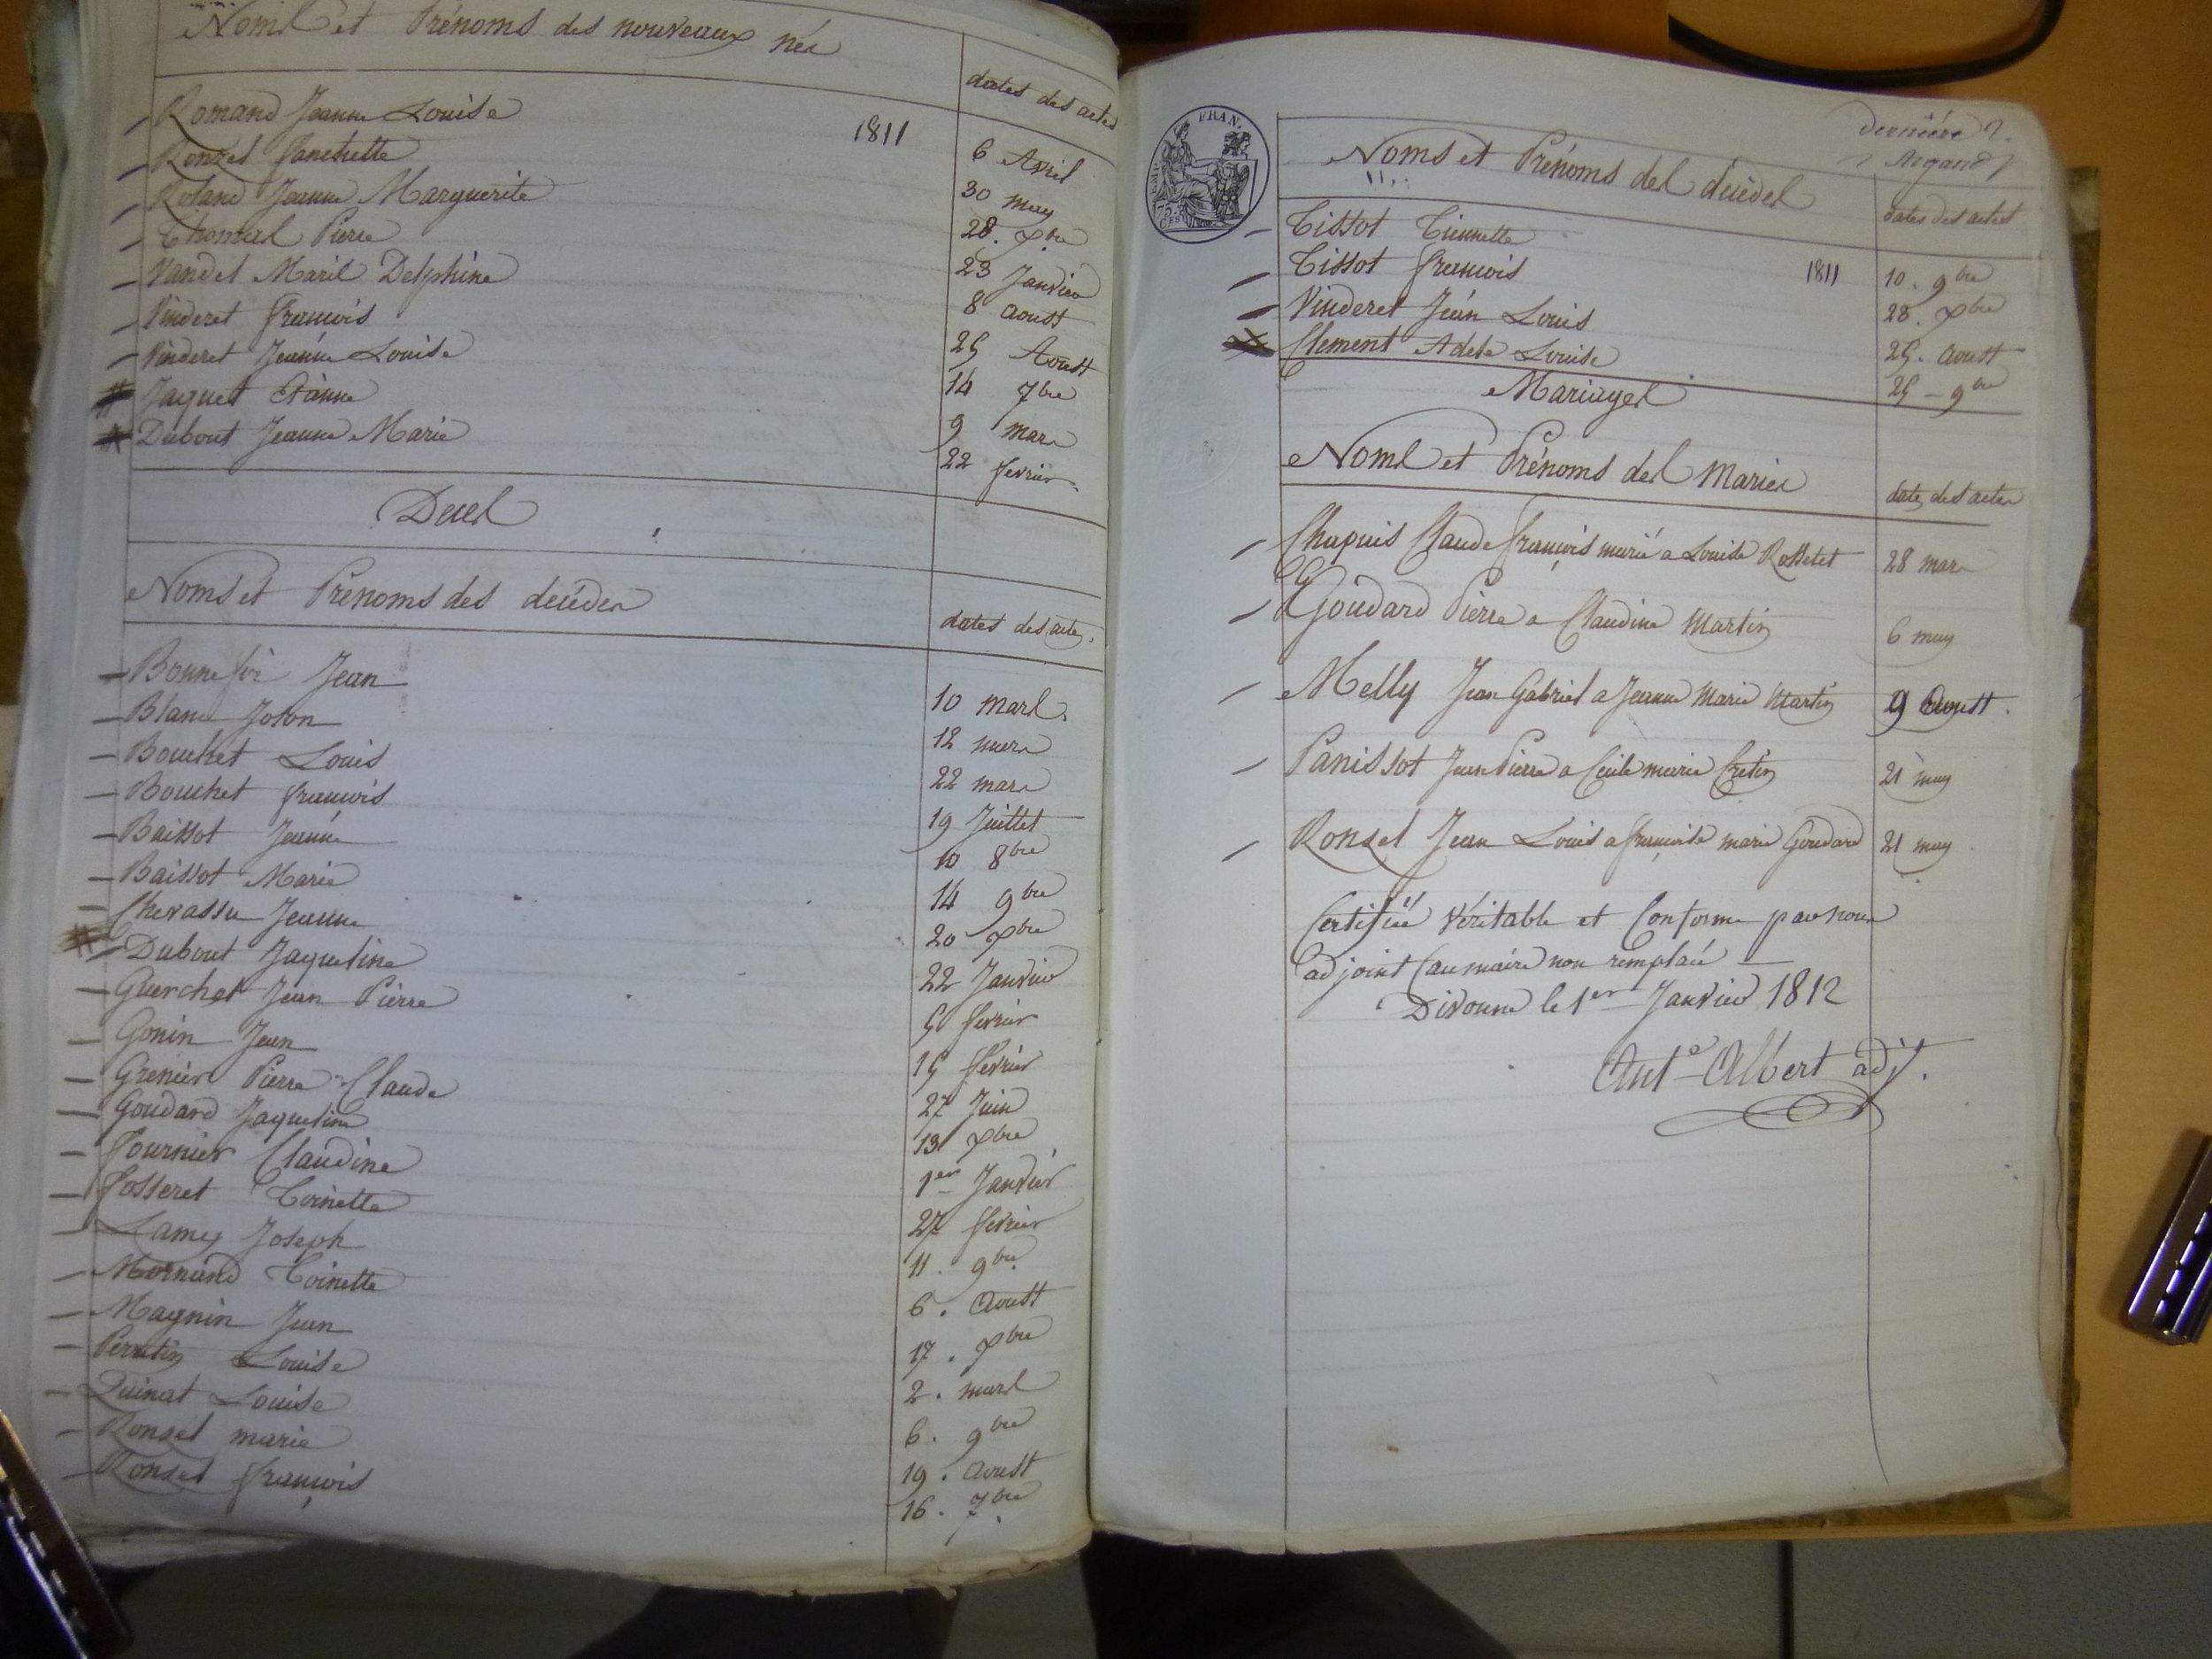 Noms et Prénoms des nouveaux nés
dates des actes
1811
Romand Jeanne Louise 6 Avril
Ronzel Fanchette 30 may
Roland Jeanne Marguerite 28. xbre
Thomas Pierre 23 Janvier
Vandel Marie Delphine 8 aoust
Vinderet françois 25 Aoust
Vinderet Jeanne Louise 14 7bre
Jaquet 9 mars
Dubout Jeanne Marie 22 fevrier
Deces
Noms et Prénoms des décédés
dates des actes.
Bonnefoi Jean 10 mars.
Blanc 12 mars
Bouchet Louis 22 mars
Bouchet françois 19 Juillet
Baissot Jeanne 10 8bre
Baissot Marie 14 9bre
Chevassu Jeanne 20 xbre
Dubout Jaqueline 22 Janvier
Guerchet Jean Pierre 5 fevrier
Gonin Jean 15 fevrier
Grenier Pierre Claude 27 Juin
Goudard Jaqueline 13 xbre
Fournier Claudine 1er Janvier
Fosseret Toinette 27 fevrier
Lamy Joseph 11. 9bre
Mornand Toinette 6. Aoust
Magnin Jean 17. xbre
Perrutin Louise 2. mars
Quinat Louise 6. 9bre
Ronzel marie 19. Aoust
Ronzel françois 16. 7bre
FRAN.
EMP.
dernière
Noms et Prénoms des décédés
dates des actes
1811
Tissot Tiennette 10. 9bre
Tissot françois 28. xbre
Vinderet Jean Louis 25. aoust
Clement Adele Louise 25 - 9bre
Mariages
Noms et Prénoms des Mariés
dates des actes
Chapuis Claude françois marié a Louise Rosselet 28 mars
Goudard Pierre a Claudine Martin 6 may
Melly Jean Gabriel a Jeanne Marie Martin 9 Aoust.
Panissot Jean Pierre a Cecile marie Cretin 21 may
Ronzel Jean Louis a françoise marie Goudard 21 may
Certifiée Véritable et Conforme par nous
adjoint au maire non remplacé
Divonne le 1er Janvier 1812
Ante Albert adjt.